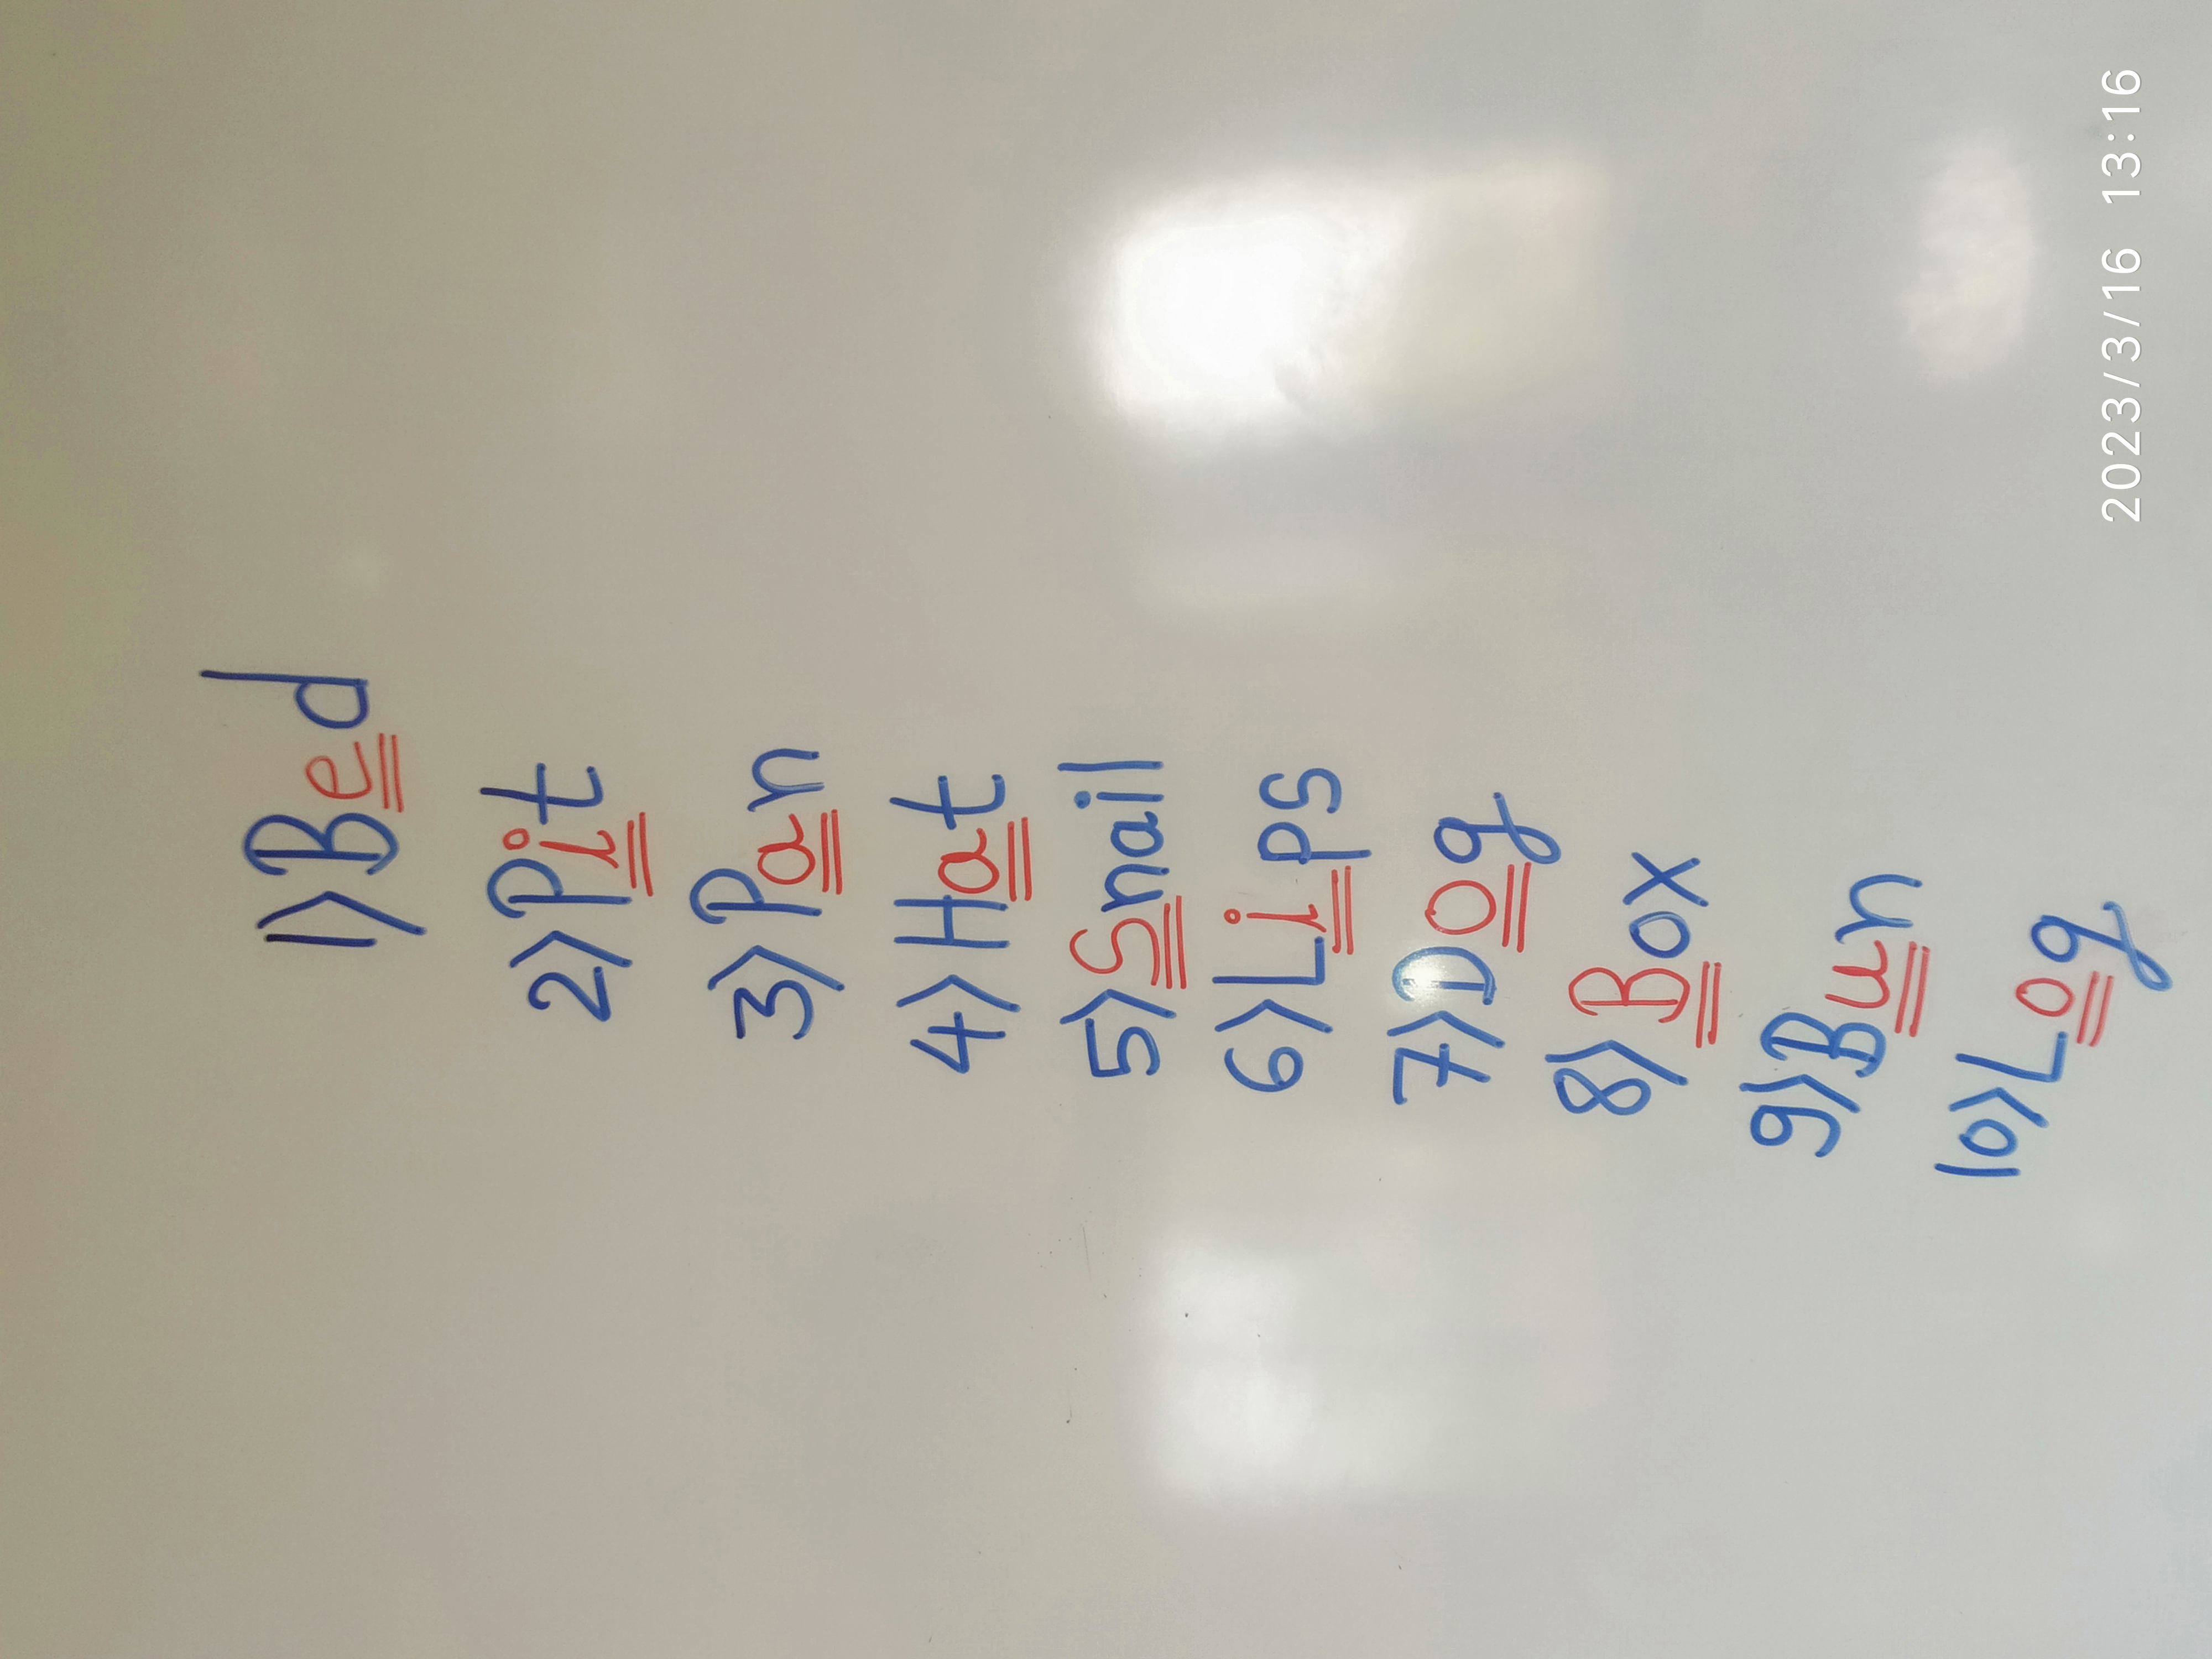 1) Bed
2) Pit
3) Pan
4) Hat
5) Snail
6) Lips
7) Dog
8) Box
9) Bun
10) Log
2023/3/16 13:16